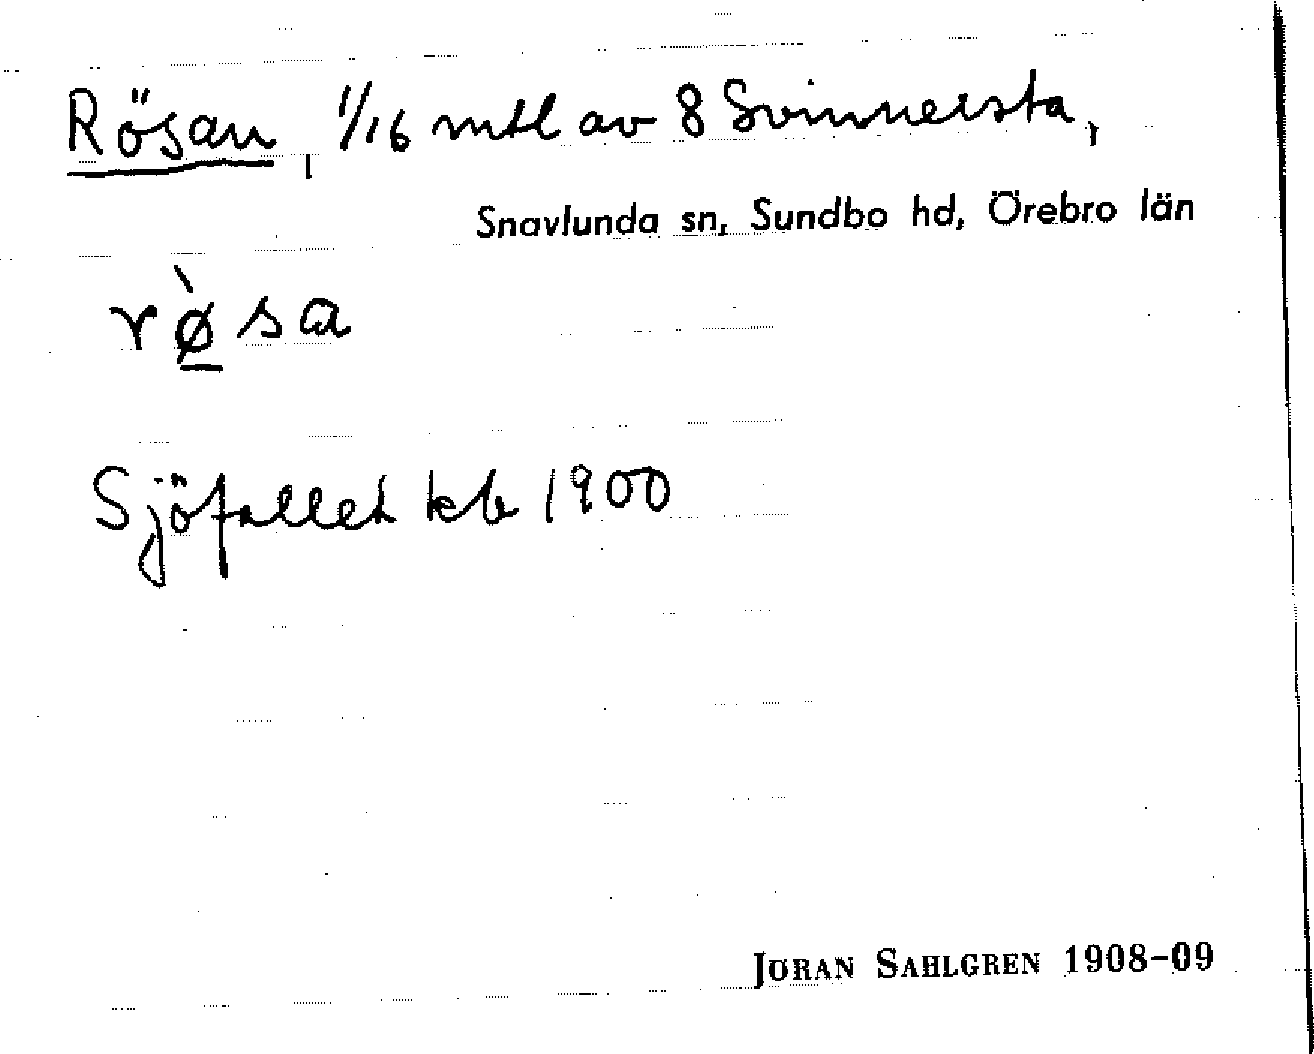 Rösan, 1/16 mtl av 8 Svinnersta,
Snavlunda sn, Sundbo hd, Örebro län
rø̲̀sa
Sjöfallet kb 1900
JÖRAN SAHLGREN 1908-09